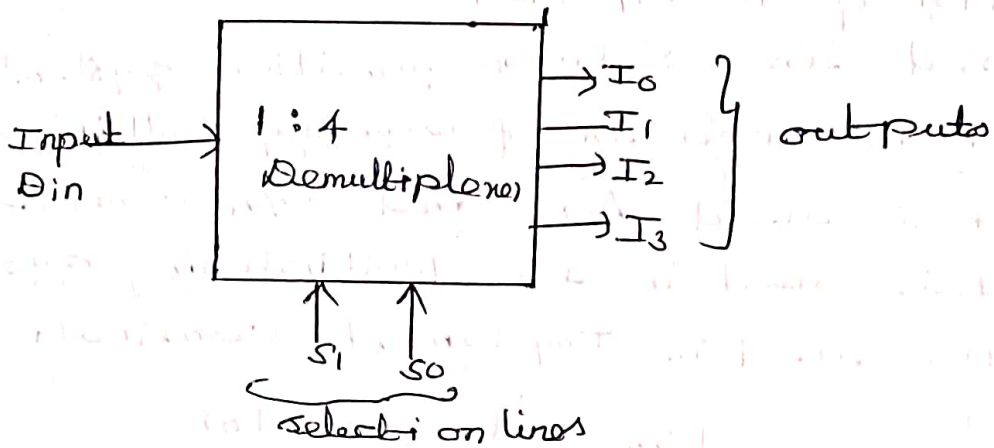 Input
Din
1 : 4
Demultiplexer
I0
I1
I2
I3
outputs
S1 S0
selection lines